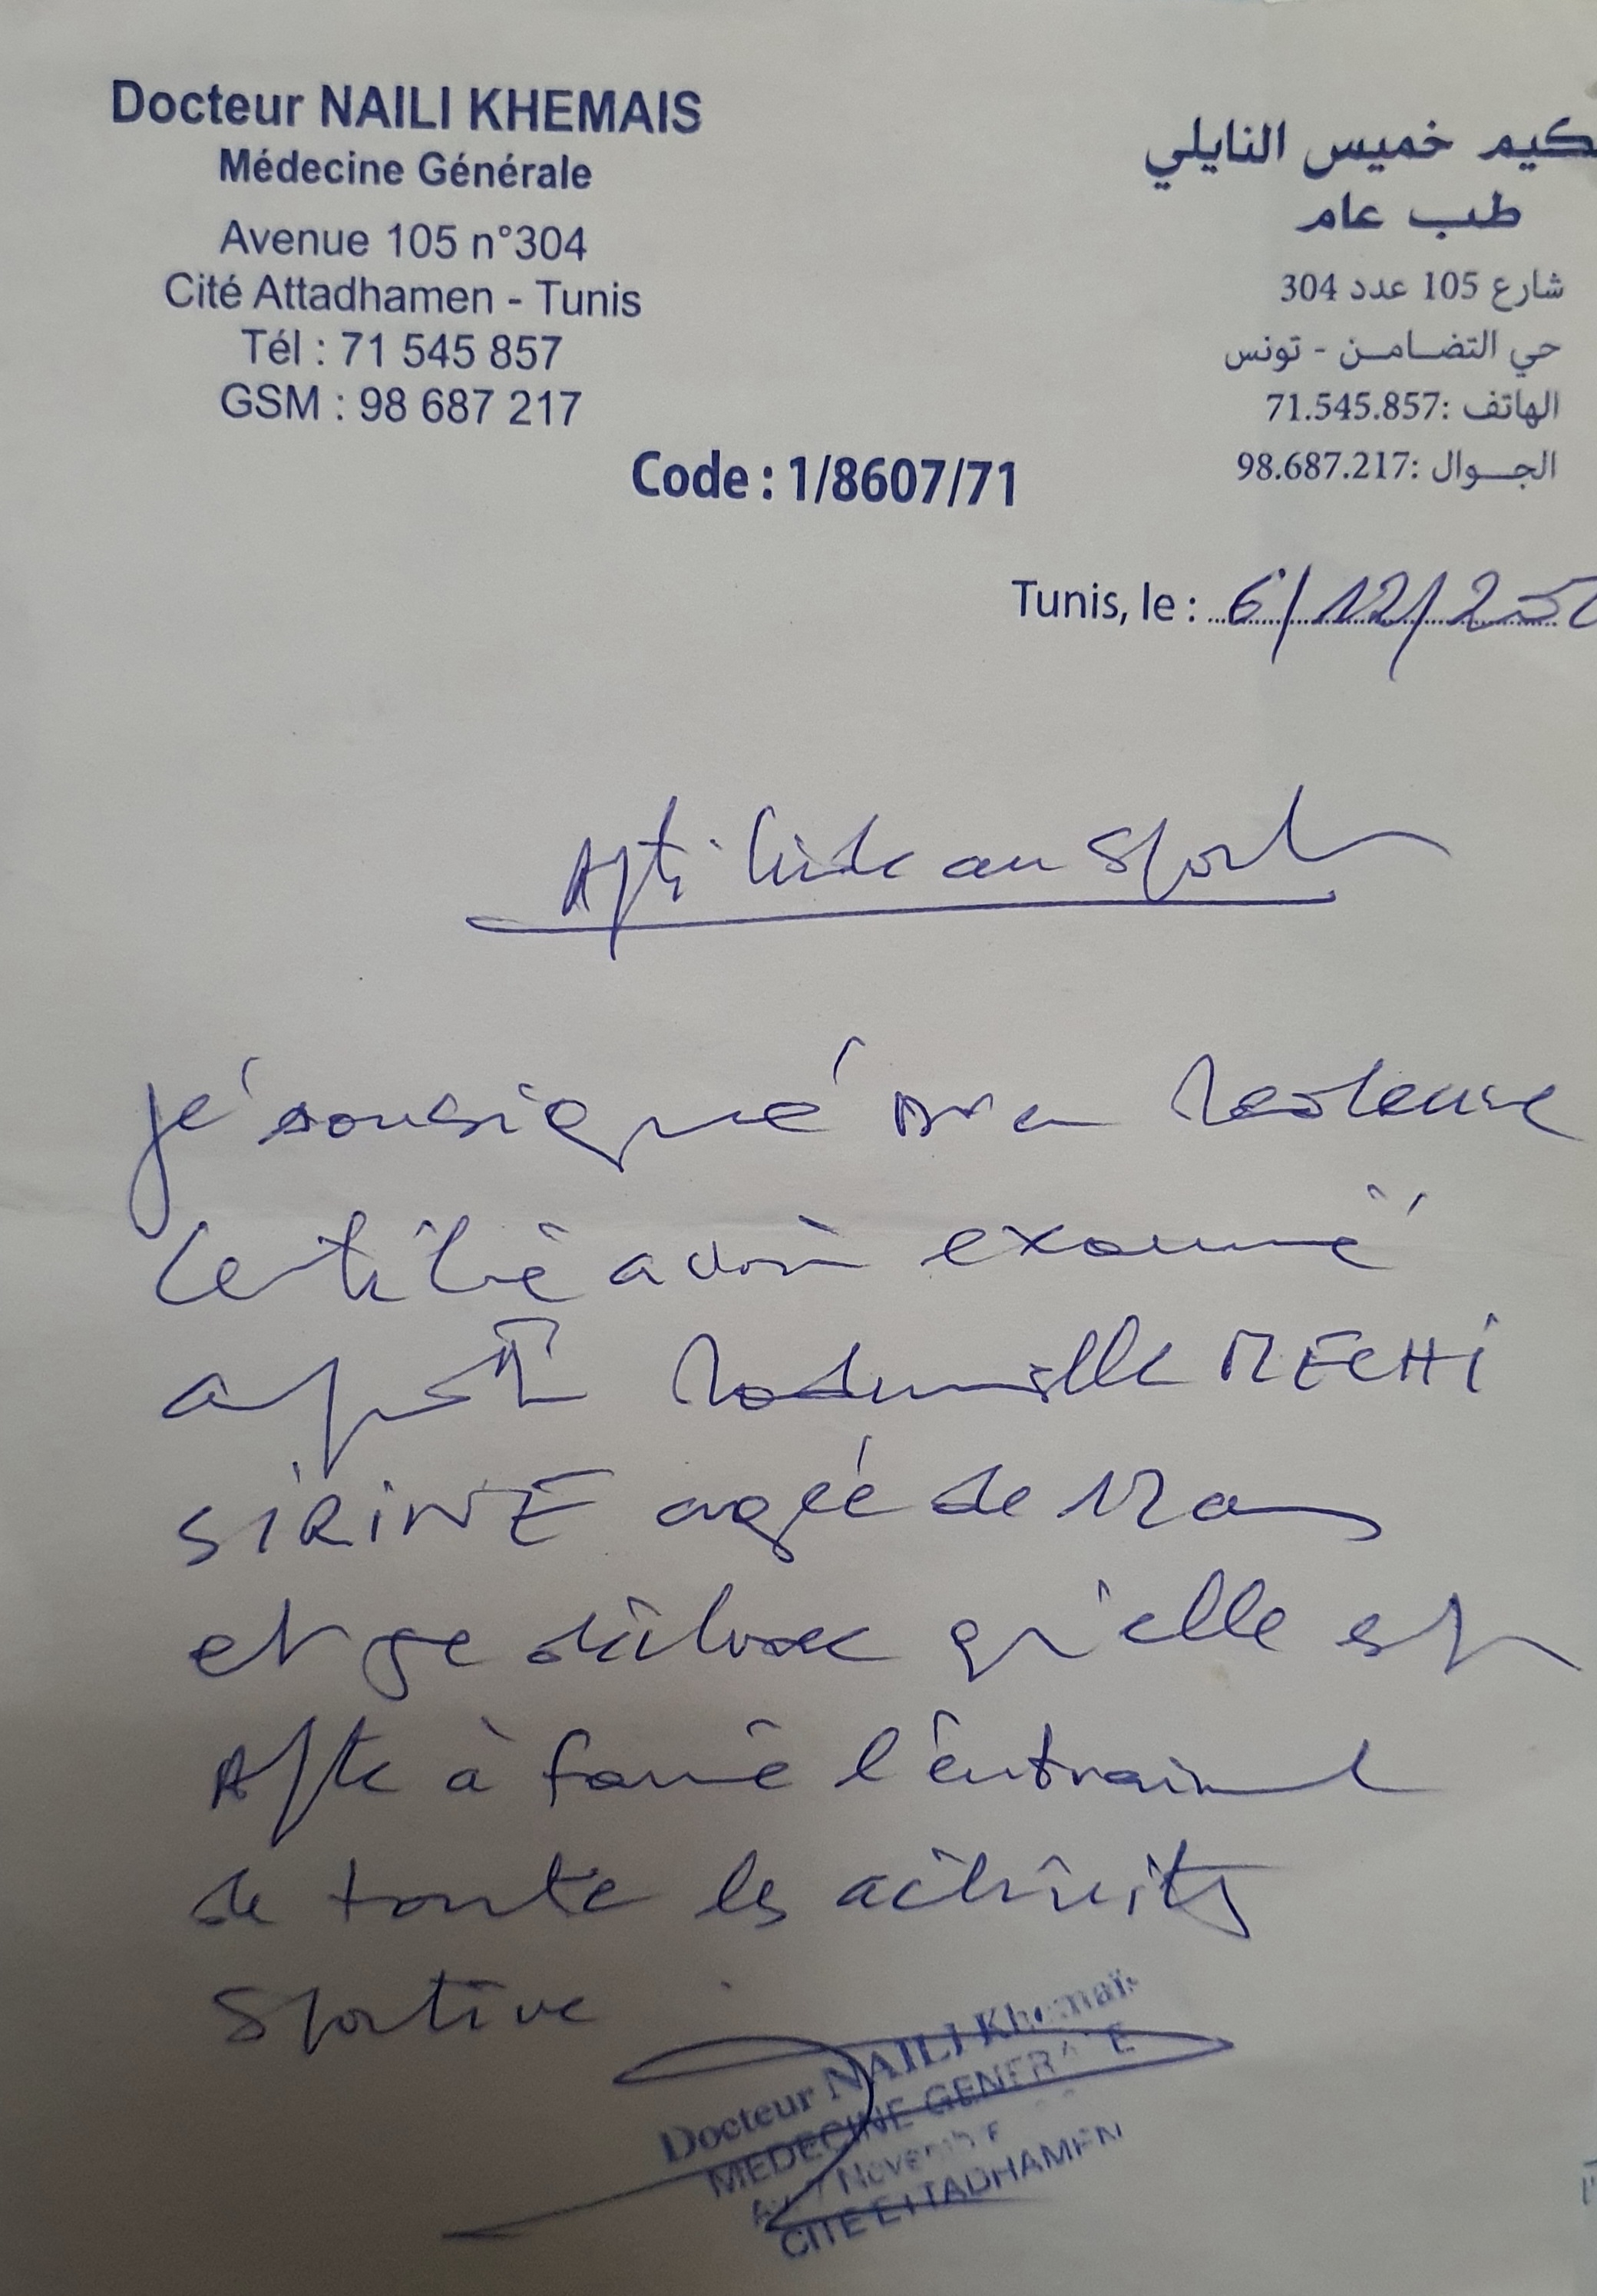 Docteur NAILI KHEMAIS
Médecine Générale
Avenue 105 n°304
Cité Attadhamen - Tunis
Tél : 71 545 857
GSM : 98 687 217
كيم خميس النايلي
طب عام
شارع 105 عدد 304
حي التضامن - تونس
الهاتف :71.545.857
الجوال :98.687.217
Code : 1/8607/71
Tunis, le : 6/12/202
Aptitude au Sport
je soussigné Dr en Medecine
Certifié avoir examiné
Mademoiselle MECHI
SIRINE agée de 12 ans
et je déclare qu'elle est
Apte à faire l'entrainement
de toute les activités
Sportive
Docteur NAILI Khemais
MEDECINE GENERALE
Av. 7 Novembre
CITE ETTADHAMEN